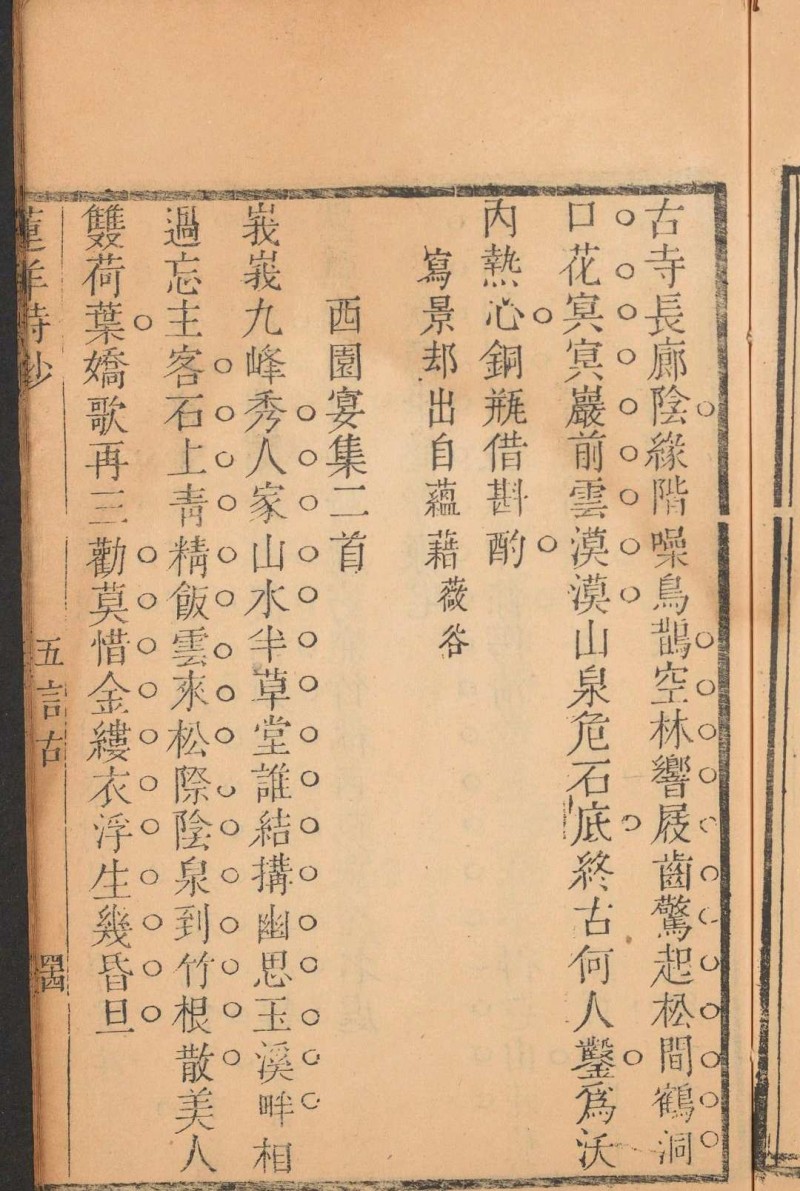 古寺長廊陰緣階噪鳥鵲空林響屐齒驚起松間鶴洞
口花冥冥巖前雲漠漠山泉危石底終古何人鑿爲沃
內熱心銅瓶借斟酌
寫景却出自蘊藉薇谷
西園宴集二首
峩峩九峰秀人家山水半草堂誰結搆幽思玉溪畔相
過忘主客石上靑精飯雲來松際陰泉到竹根散美人
雙荷葉嬌歌再三勸莫惜金縷衣浮生幾昏旦
蓮洋詩鈔
五言古